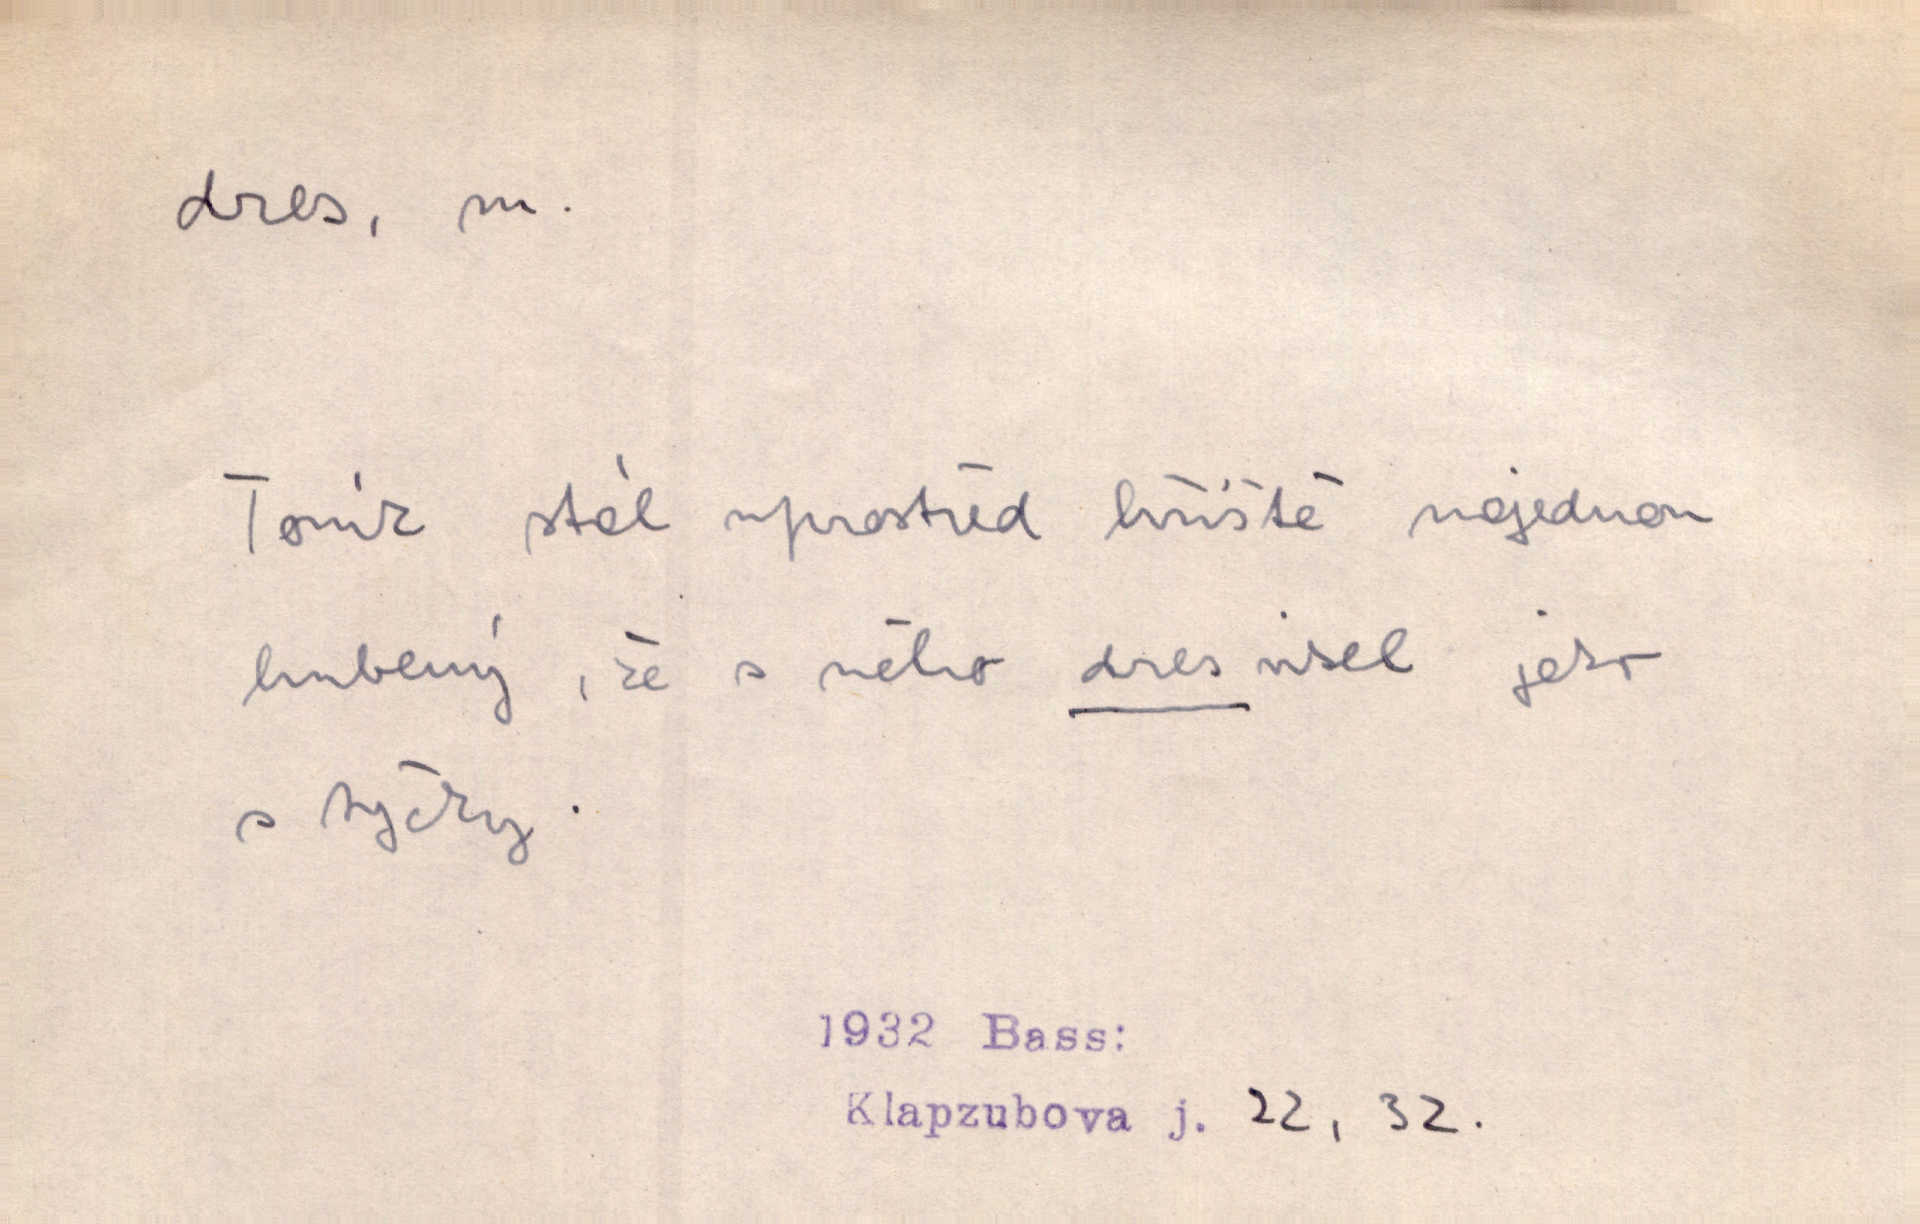 dres, m.
Toník stál uprostřed hřiště najednou
hubený, že s něho dres visel jako
s tyčky.
1932 Bass:
Klapzubova j. 22, 32.